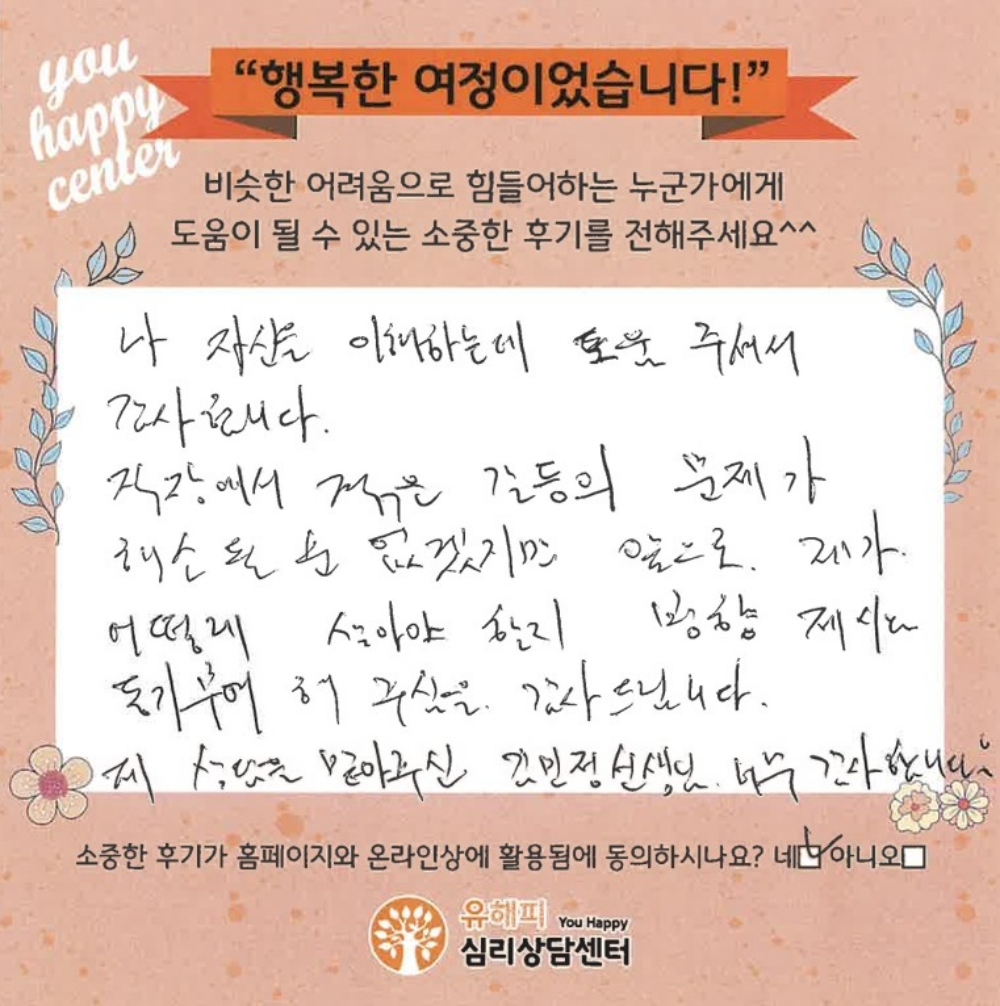 you
happy
center
“행복한 여정이었습니다!”
비슷한 어려움으로 힘들어하는 누군가에게
도움이 될 수 있는 소중한 후기를 전해주세요^^
나 자신을 이해하는데 도움 주셔서
감사합니다.
직장에서 겪은 갈등의 문제가
해소 될 순 없겠지만 앞으로. 제가.
어떻게 살아야 할지 방향 제시와
동기부여 해 주심을. 감사드립니다.
제 상담을 맡아주신 김민정선생님. 너무 감사합니다~
소중한 후기가 홈페이지와 온라인상에 활용됨에 동의하시나요? 네☑ 아니오□
유해피 You Happy
심리상담센터